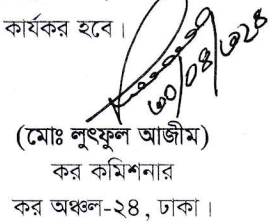 কার্যকর হবে।
৩০/০৪/২০২৪
(মোঃ লুৎফুল আজীম)
কর কমিশনার
কর অঞ্চল-২৪, ঢাকা।